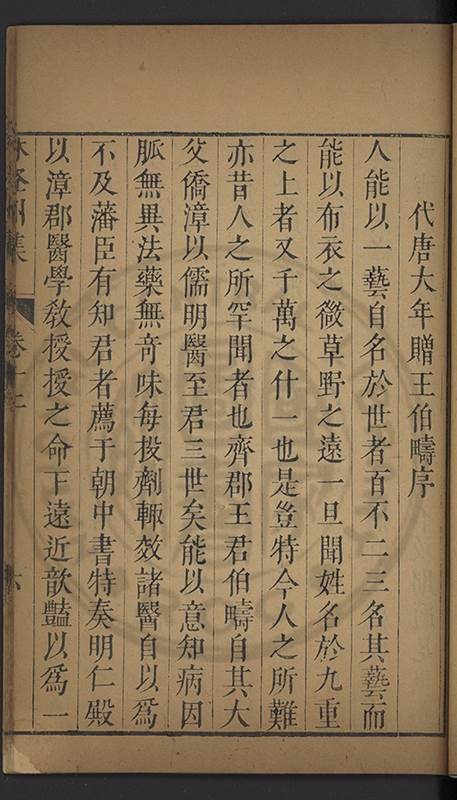 代唐大年贈王伯疇序
人能以一藝自名於世者百不二三名其藝而
能以布衣之微草野之遠一旦聞姓名於九重
之上者又千萬之什一也是豈特今人之所難
亦昔人之所罕聞者也齊郡王君伯疇自其大
父僑漳以儒明醫至君三世矣能以意知病因
脈無異法藥無奇味每投劑輒效諸醫自以爲
不及藩臣有知君者薦于朝中書特奏明仁殿
以漳郡醫學敎授授之命下遠近歆豔以爲一
林登州集
卷十
六